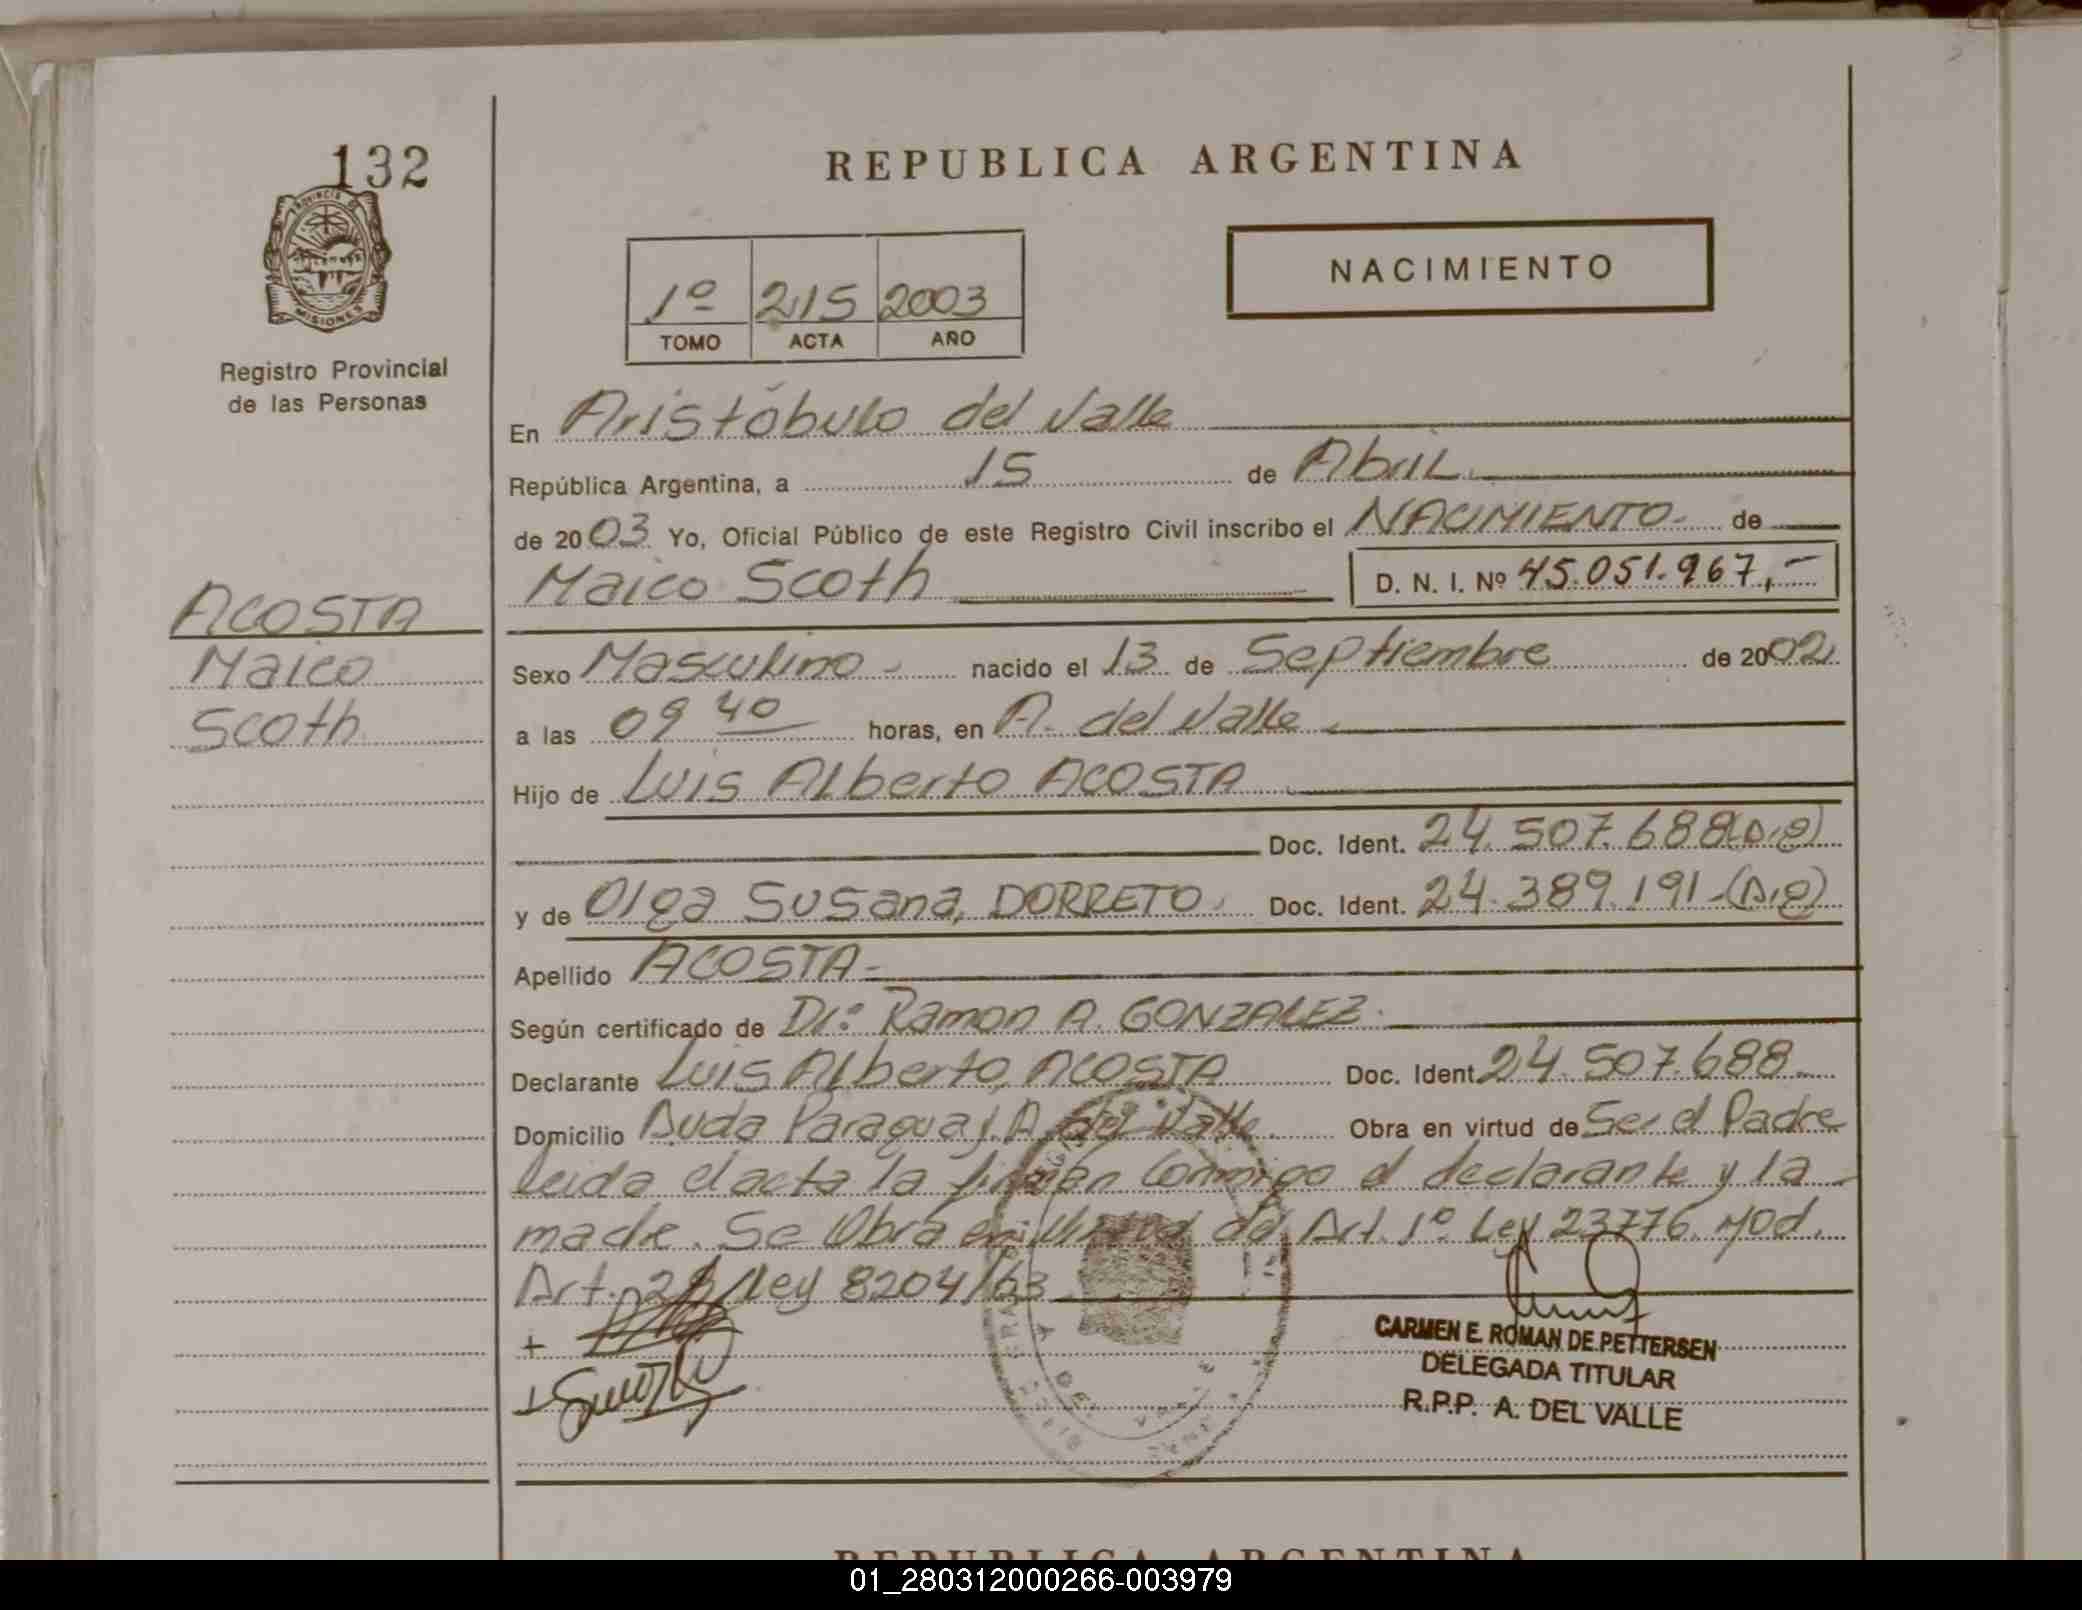 132
PROVINCIA DE
MISIONES
Registro Provincial
de las Personas
ACOSTA
Maico
Scoth
REPUBLICA ARGENTINA
1º 215 2003
TOMO ACTA AÑO
NACIMIENTO
En Aristóbulo del Valle
República Argentina, a 15 de Abril
de 2003 Yo, Oficial Público de este Registro Civil inscribo el NACIMIENTO de
Maico Scoth D. N. I. Nº 45.051.967,-
Sexo Masculino - nacido el 13 de Septiembre de 2002
a las 09 40 horas, en A. del Valle
Hijo de Luis Alberto ACOSTA
Doc. Ident. 24.507.688
y de Olga Susana, DORRETO. Doc. Ident. 24.389.191-
Apellido ACOSTA-
Según certificado de Dr: Ramon A. GONZALEZ.
Declarante Luis Alberto, ACOSTA Doc. Ident 24.507.688
Domicilio Avda Paraguay. A. del Valle. Obra en virtud de Ser el Padre
Leida el acta la firman Conmigo el declarante y la
madre. Se Obra en virtud del Art. 1º Ley 23776. Mod.
Art. Ley 8204/63
CARMEN E. ROMAN DE PETTERSEN
DELEGADA TITULAR
R.P.P. A. DEL VALLE
REPUBLICA ARGENTINA
01_280312000266-003979